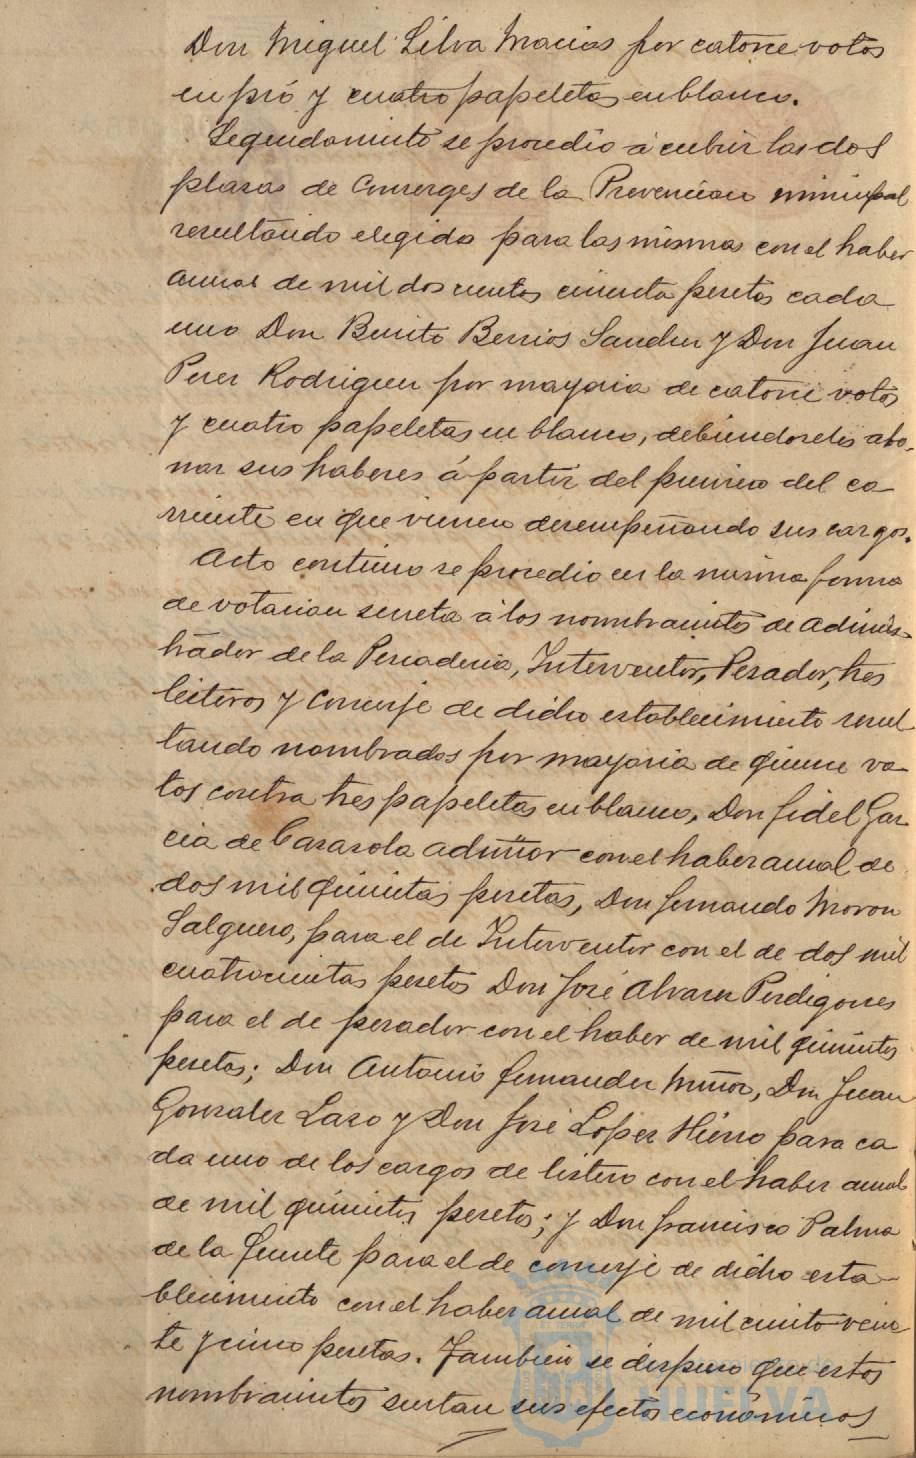 Don Miguel Silva Macias por catorce votos
en pró y cuatro papeletas en blanco.
Seguidamente se procedio á cubrir las dos
plazas de Conserges de la Prevencion minicipal
resultando elegido para las mismas con el haber
anual de mil doscientas cincuenta pesetas cada
uno Don Benito Berrios Sanchez y Don Juan
Perez Rodriguez por mayoria de catorce votos
y cuatro papeletas en blanco, debiendoseles abo-
nar sus haberes á partir del primero del co
rriente en que vienen desempeñando sus cargos.
Acto continuo se procedio en la misma forma
de votacion secreta á los nombramientos de adminis-
trador de la Pescaderia, Interventor, Pesador, tres
listeros y Conserje de dicho establecimiento resul
tando nombrados por mayoria de quince vo
tos contra tres papeletas en blanco, Don Fidel Gar
cia de Casasola admñor con el haber anual de
dos mil quinientas pesetas, Don Fernando Moron
Salguero, para el de Interventor con el de dos mil
cuatrocientas pesetas Don José Alvarez Perdigones
para el de pesador con el haber de mil quinientas
pesetas; Don Antonio Fernandez Muñoz, Don Juan
Gonzalez Lazo y Don José Lopez Hierro para ca
da uno de los cargos de listero con el haber anual
de mil quinientas pesetas; y Don Francisco Palma
de la Fuente para el de conserje de dicho esta-
blecimiento con el haber anual de mil ciento vein
te y cinco pesetas. Tambien se dispuso que estos
nombramientos surtan sus efectos económicos
Ayuntamiento de
HUELVA